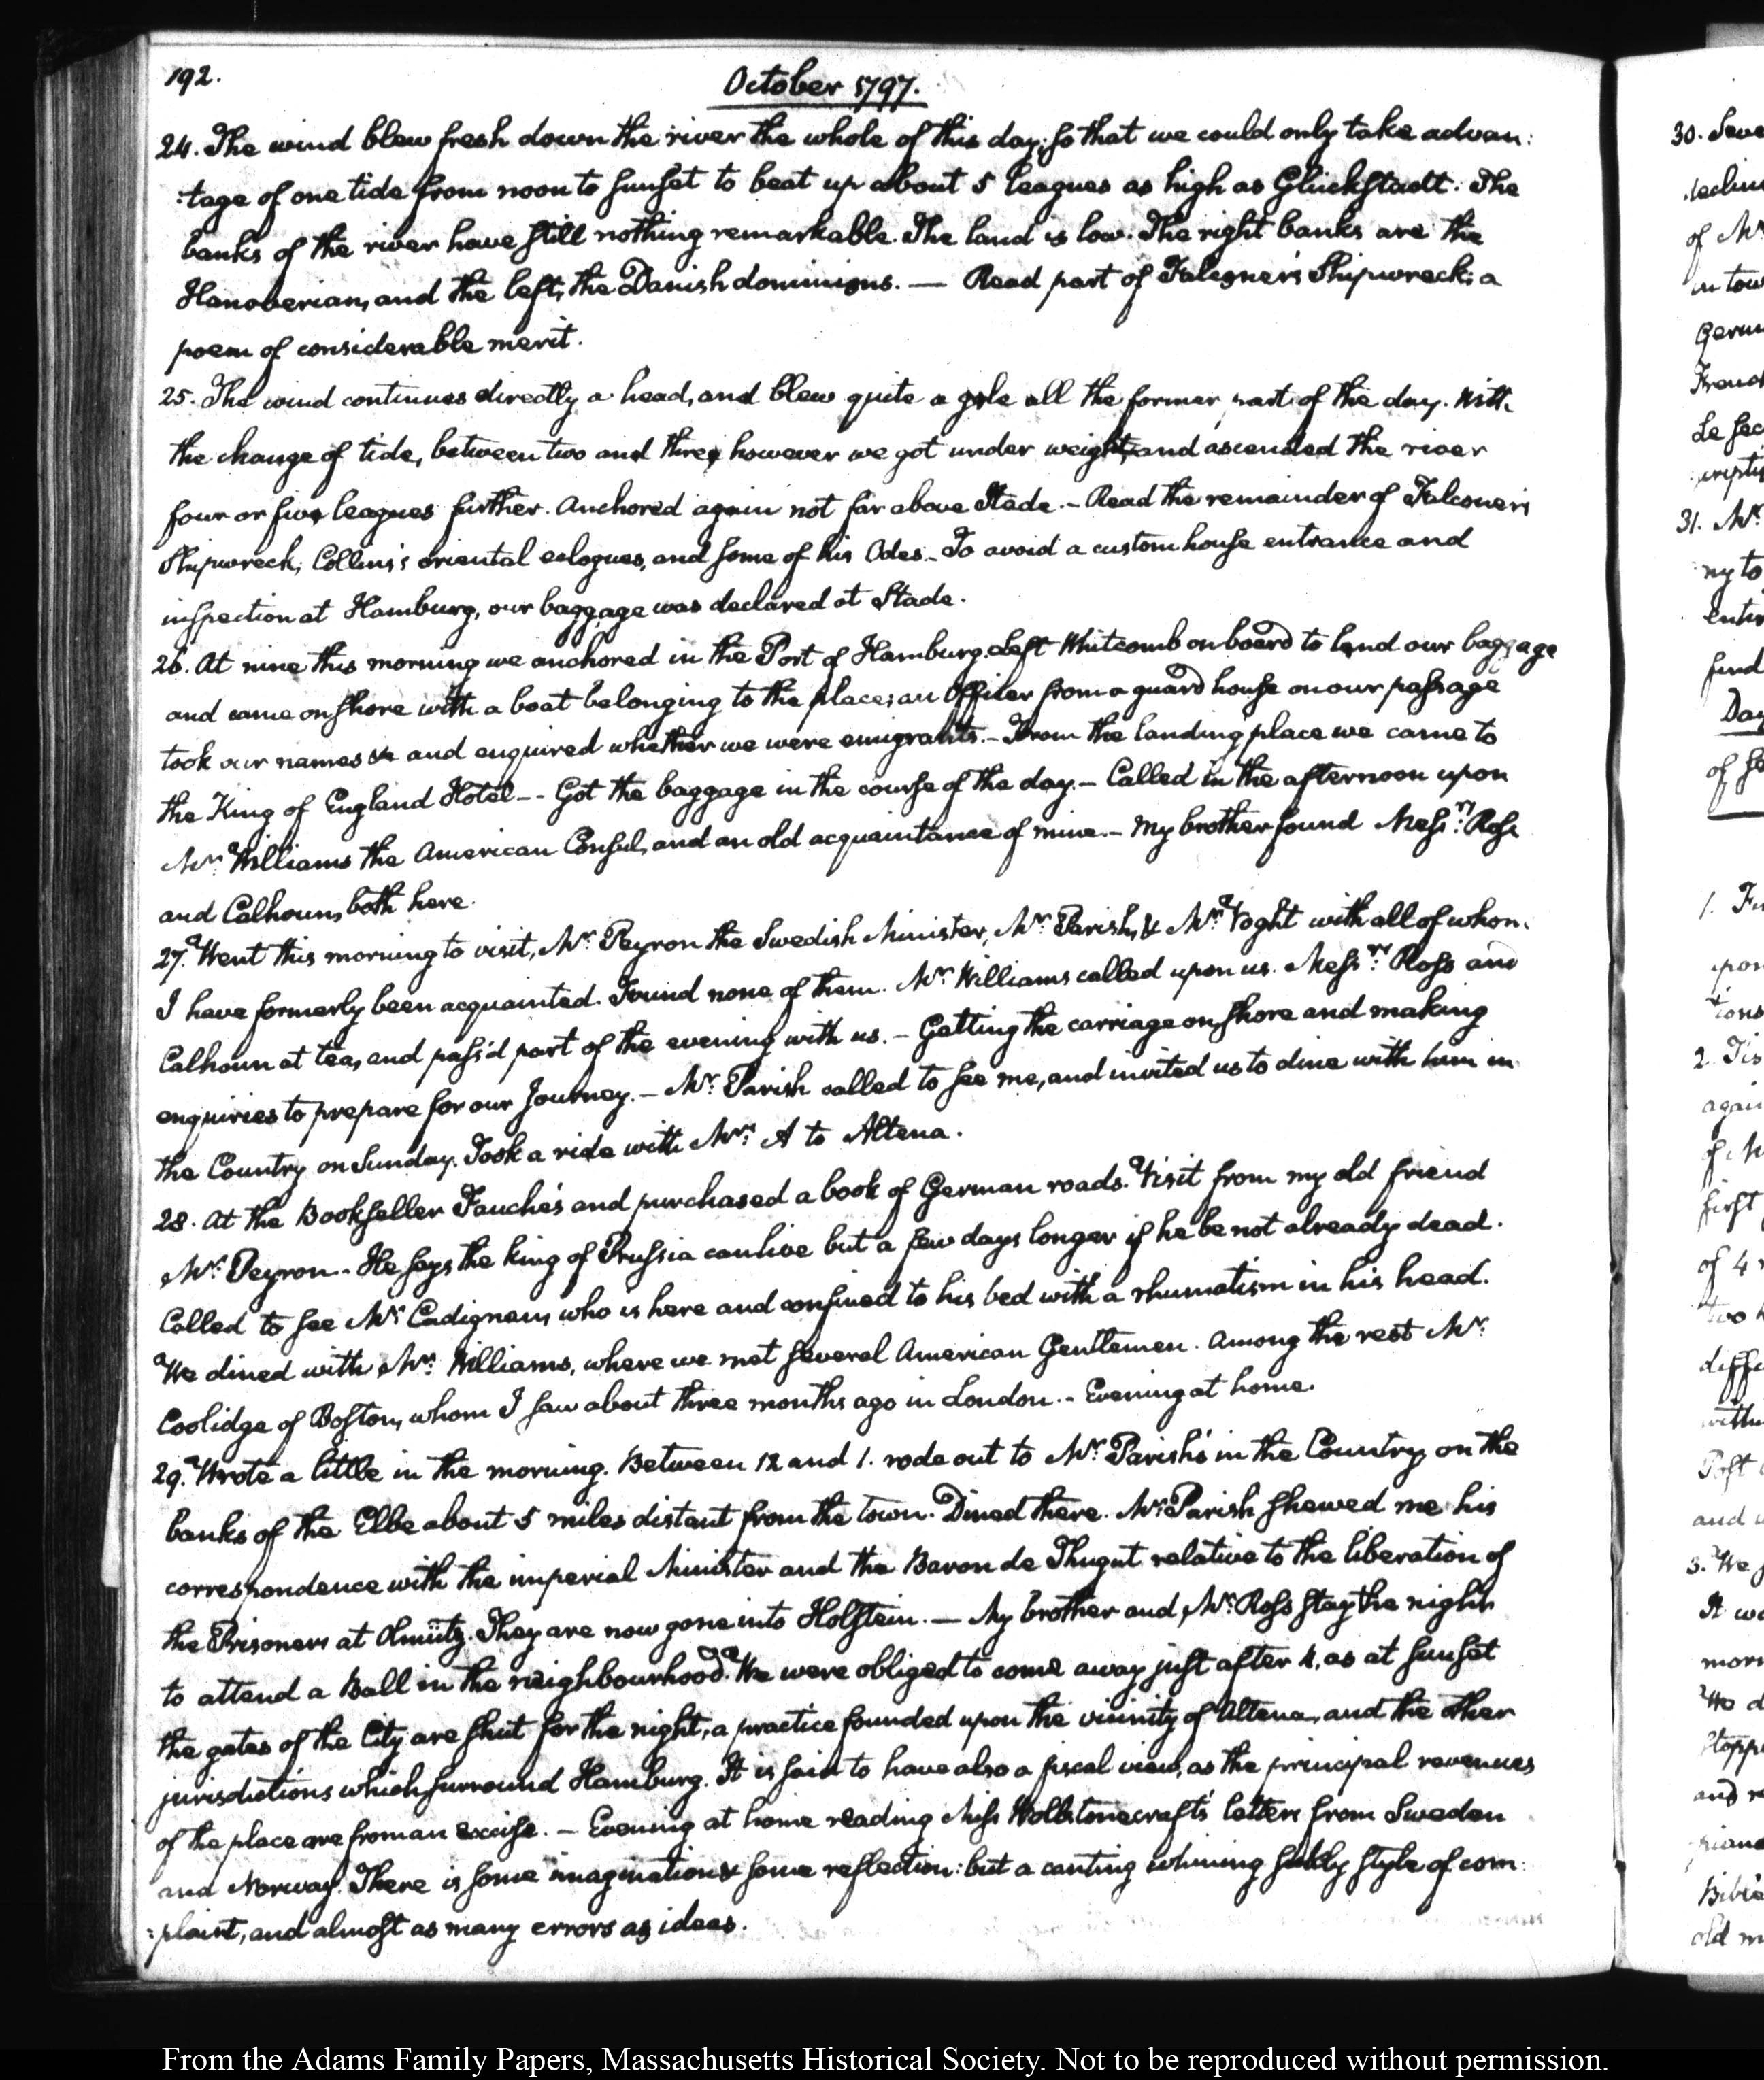 192.
October 1797.
24. The wind blew fresh down the river the whole of this day; so that we could only take advan:
:tage of one tide from noon to sunset to beat up about 5 leagues as high as Glückstadt. The
banks of the river have still nothing remarkable. The land is low. The right banks are the
Hanoverian, and the left, the Danish dominions. — Read part of Falconer's Shipwreck; a
poem of considerable merit.
25. The wind continues directly a head, and blew quite a gale all the former part of the day. With
the change of tide, between two and three however we got under weight, and ascended the river
four or five leagues further. Anchored again not far above Stade. – Read the remainder of Falconer's
Shipwreck, Collins's oriental eclogues, and some of his Odes. – To avoid a custom house entrance and
inspection at Hamburg, our baggage was declared at Stade.
26. At nine this morning we anchored in the Port of Hamburg. Left Whitcomb on board to land our baggage
and came on shore with a boat belonging to the place; an Officer from a guard house on our passage
took our names &c and enquired whether we were emigrants. – From the landing place we came to
the King of England Hotel – – Got the baggage in the course of the day. – Called in the afternoon upon
Mr: Williams the American Consul, and an old acquaintance of mine. – My brother found Messrs: Ross
and Calhoun, both here.
27. Went this morning to visit, Mr: Peyron the Swedish Minister, Mr: Parish, & Mr: Voght with all of whom
I have formerly been acquainted. Found none of them. Mr: Williams called upon us. Messrs: Ross and
Calhoun at tea, and pass'd part of the evening with us. – Getting the carriage on shore and making
enquiries to prepare for our Journey. – Mr: Parish called to see me, and invited us to dine with him in
the Country on Sunday. Took a ride with Mrs: A to Altena.
28. At the Bookseller Fauche's and purchased a book of German roads. Visit from my old friend
Mr: Peyron. – He says the king of Prussia can live but a few days longer if he be not already dead.
Called to see Mr: Cadignan, who is here and confined to his bed with a rhumatism in his head.
We dined with Mr: Williams, where we met several American Gentlemen. Among the rest Mr:
Coolidge of Boston, whom I saw about three months ago in London. – Evening at home.
29. Wrote a little in the morning. Between 12 and 1. rode out to Mr: Parish's in the Country, on the
banks of the Elbe about 5 miles distant from the town. Dined there. Mr: Parish shewed me his
correspondence with the imperial Minister and the Baron de Thugut relative to the liberation of
the Prisoners at Olmütz. They are now gone into Holstein. — My brother and Mr: Ross stay the night
to attend a Ball in the neighbourhood. We were obliged to come away just after 4, as at sunset
the gates of the City are shut for the night, a practice founded upon the vicinity of Altena, and the other
jurisdictions which surround Hamburg. It is said to have also a fiscal view, as the principal revenues
of the place are from an excise. – Evening at home reading Miss Wollstonecraft's letters from Sweden
and Norway. There is some imagination & some reflection: but a canting whining style of com:
:plaint, and almost as many errors as ideas.
30.
of Mr
31. Mr:
find
1.
2.
again
first
of 4
Post
and
3. We
It
We
and
old
From the Adams Family Papers, Massachusetts Historical Society. Not to be reproduced without permission.